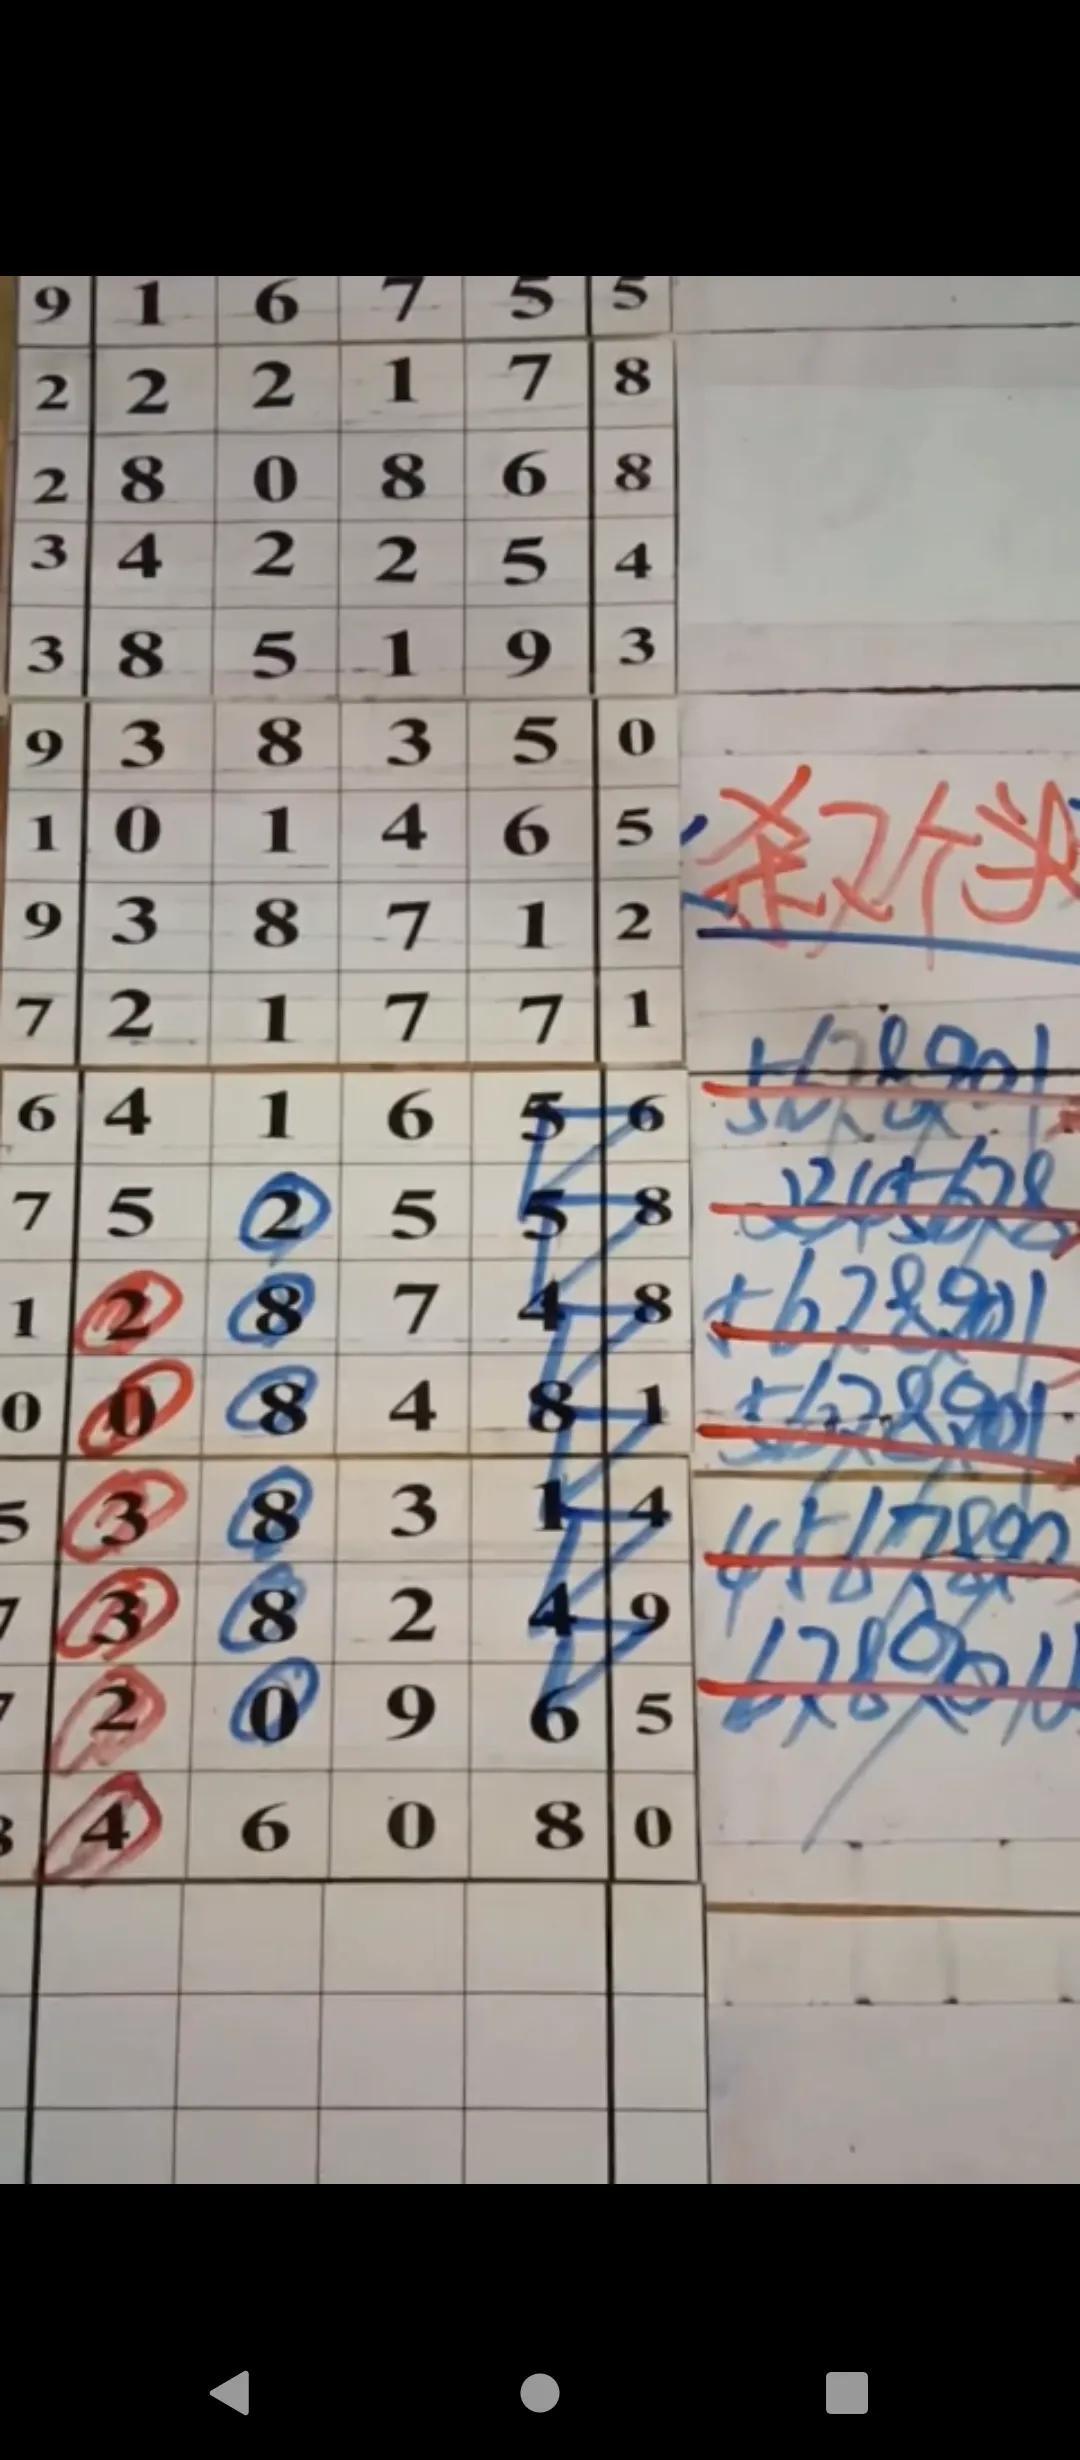 9 1 6 7 5 5
2 2 2 1 7 8
2 8 0 8 6 8
3 4 2 2 5 4
3 8 5 1 9 3
9 3 8 3 5 0
1 0 1 4 6 5
杀2个头
9 3 8 7 1 2
7 2 1 7 7 1
6 4 1 6 5 6
7 5 2 5 5 8
2345678
1 2 8 7 4 8
5678901
0 0 8 4 8 1
5678901
5 3 8 3 1 4
7 3 8 2 4 9
7 2 0 9 6 5
4 6 0 8 0